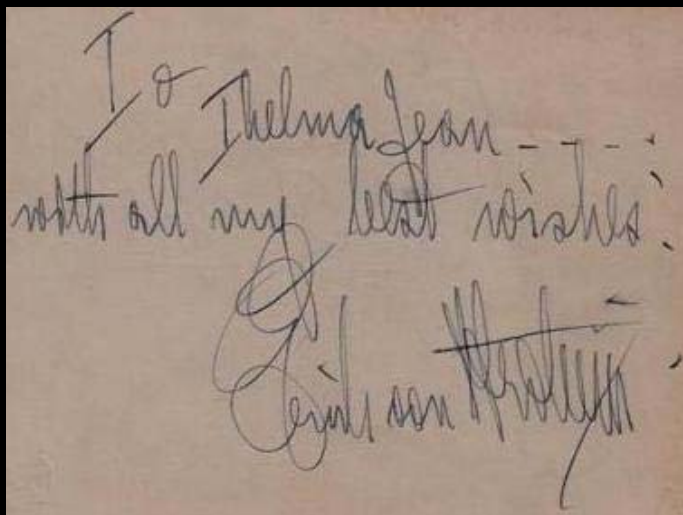 To Thelma Jean - - - - :
with all my best wishes :
Erich von Stroheim